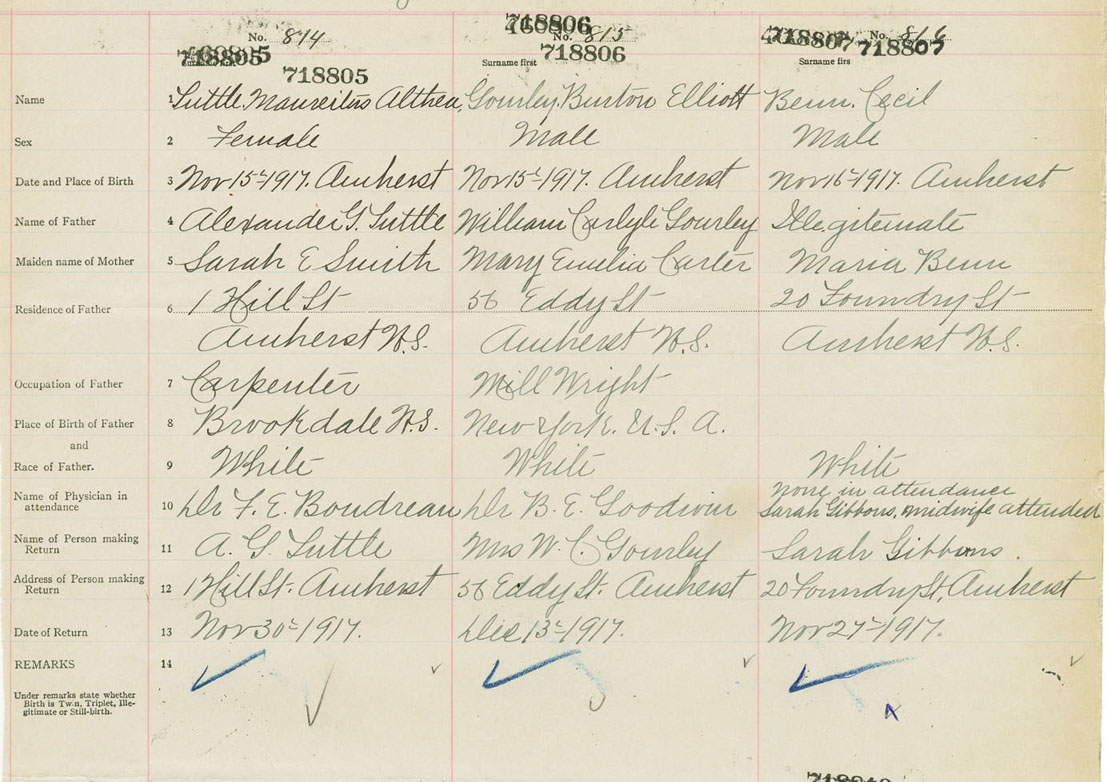 No. 814
718805
Surname first
718805
718806
No. 815
718806
Surname first
718807
No. 816
718807
Surname firs
Name 1 Tuttle. Althea, Gourley. Burton Elliott Benn. Cecil
Sex 2 Female Male Male
Date and Place of Birth 3 Nov 15th 1917. Amherst Nov 15th 1917. Amherst Nov 16th 1917. Amherst
Name of Father 4 Alexander G. Tuttle William Carlyle Gourley Illegitemate
Maiden name of Mother 5 Sarah E Smith Mary Emelia Carter Maria Benn
Residence of Father 6 1 Hill St 56 Eddy St 20 Foundry St
Amherst N.S. Amherst N.S. Amherst N.S.
Occupation of Father 7 Carpenter Mill Wright
Place of Birth of Father 8 Brookdale N.S. New York. U.S.A.
and
Race of Father. 9 White White White
Name of Physician in attendance 10 Dr F. E. Boudreau Dr B. E. Goodwin None in attendance
Sarah Gibbons, midwife attended
Name of Person making Return 11 A. G. Tuttle Mrs W. C. Gourley Sarah Gibbons.
Address of Person making Return 12 1 Hill St. Amherst 56 Eddy St. Amherst 20 Foundry St, Amherst
Date of Return 13 Nov 30th 1917. Dec 13th 1917. Nov 27th 1917.
REMARKS 14
Under remarks state whether
Birth is Twin, Triplet, Ille-
gitimate or Still-birth.